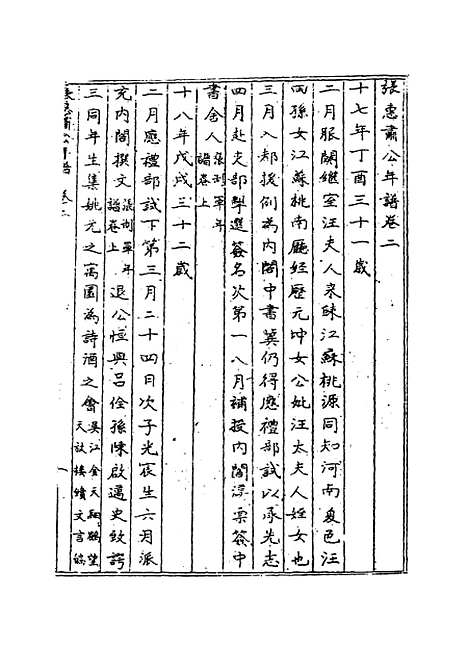 張惠肅公年譜卷二
十七年丁酉三十一歲
二月服闋繼室汪夫人來歸江蘇桃源同知河南夏邑汪
兩孫女江蘇桃南廳經歷元坤女公妣汪太夫人姪女也
三月入都援例為內閣中書冀仍得應禮部試以承先志
四月赴吏部掣選簽名次第一八月補授內閣漢票簽中
書舍人張制軍年譜卷上
十八年戊戌三十二歲
二月應禮部試下第三月二十四日次子光宸生六月派
充內閣撰文張制軍年譜卷上退公恒與呂佺孫陳啟邁史致諤
三同年生集姚元之寓園為詩酒之會吳江金天翮鶴望天放樓續文言
張惠肅公年譜 卷二 一